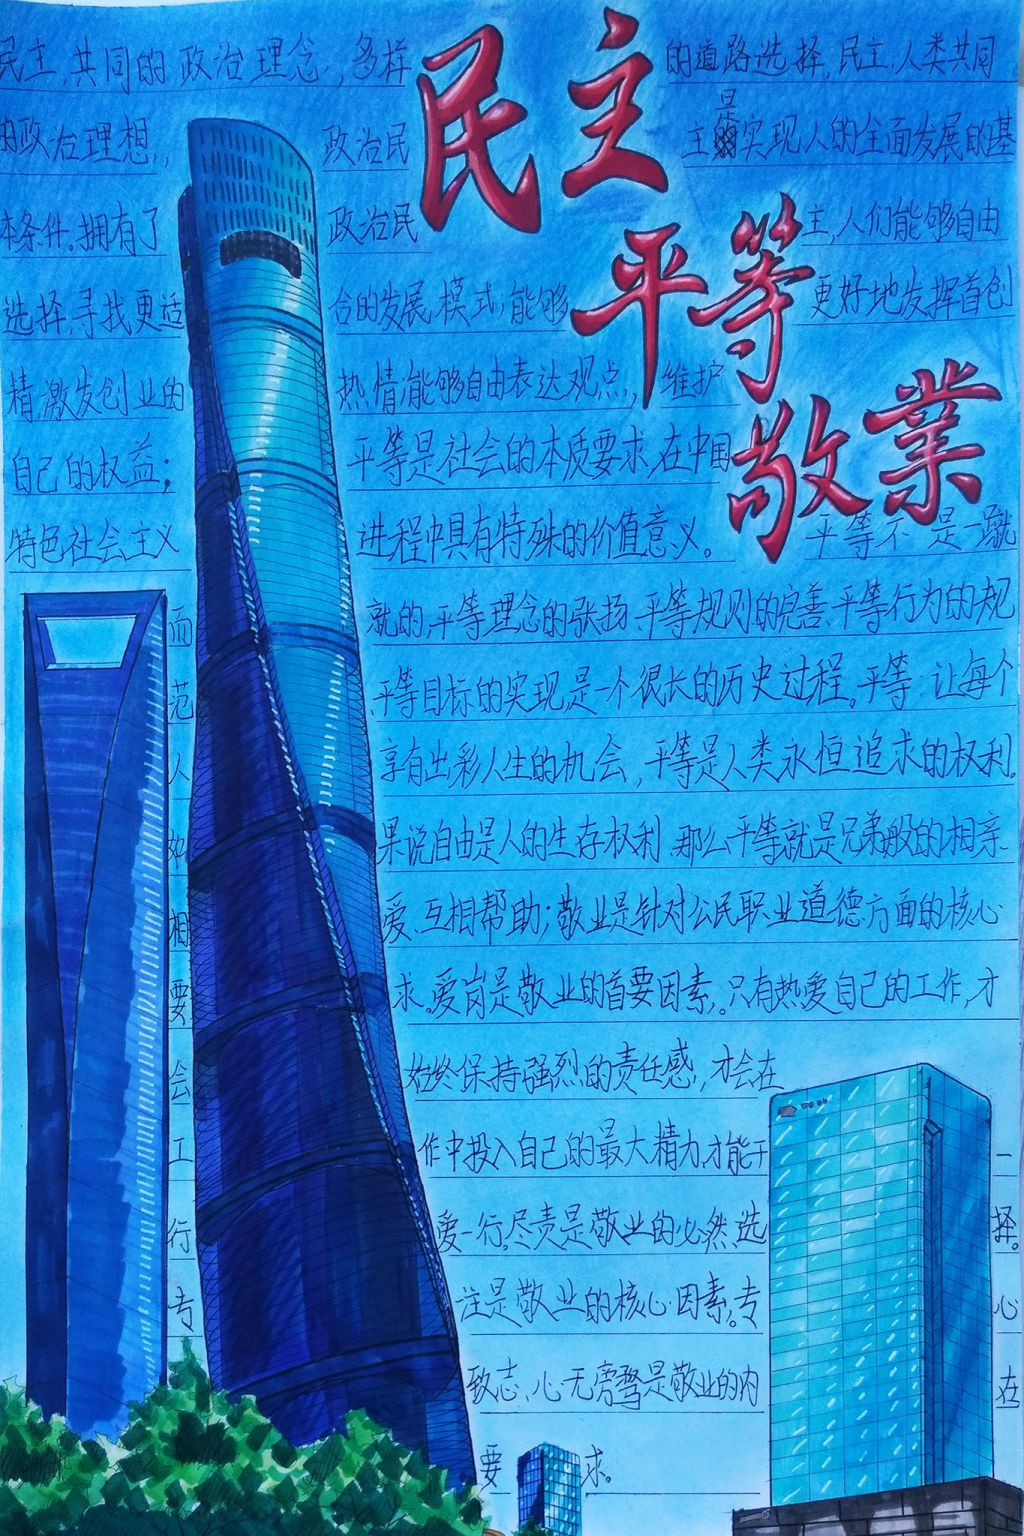 民主
平等
敬業
民主,共同的政治理念,多样的道路选择,民主,人类共同
的政治理想,,政治民主是实现人的全面发展的基
本条件.拥有了政治民主,人们能够自由
选择,寻找更适合的发展模式,能够更好地发挥首创
精,激发创业的热情;能够自由表达观点,维护
自己的权益;平等是社会的本质要求,在中国
特色社会主义进程中具有特殊的价值意义。平等不是一蹴
而就的,平等理念的张扬、平等规则的完善、平等行为的规
范、平等目标的实现,是一个很长的历史过程。平等,让每个
人享有出彩人生的机会,平等是人类永恒追求的权利。
如果说自由是人的生存权利,那么平等就是兄弟般的相亲
相爱、互相帮助;敬业是针对公民职业道德方面的核心
要求。爱岗是敬业的首要因素,。只有热爱自己的工作,才
会始终保持强烈的责任感,才会在
工作中投入自己的最大精力,才能干一
行爱一行,尽责是敬业的必然选择。
专注是敬业的核心因素。专心
致志、心无旁骛是敬业的内在
要求。